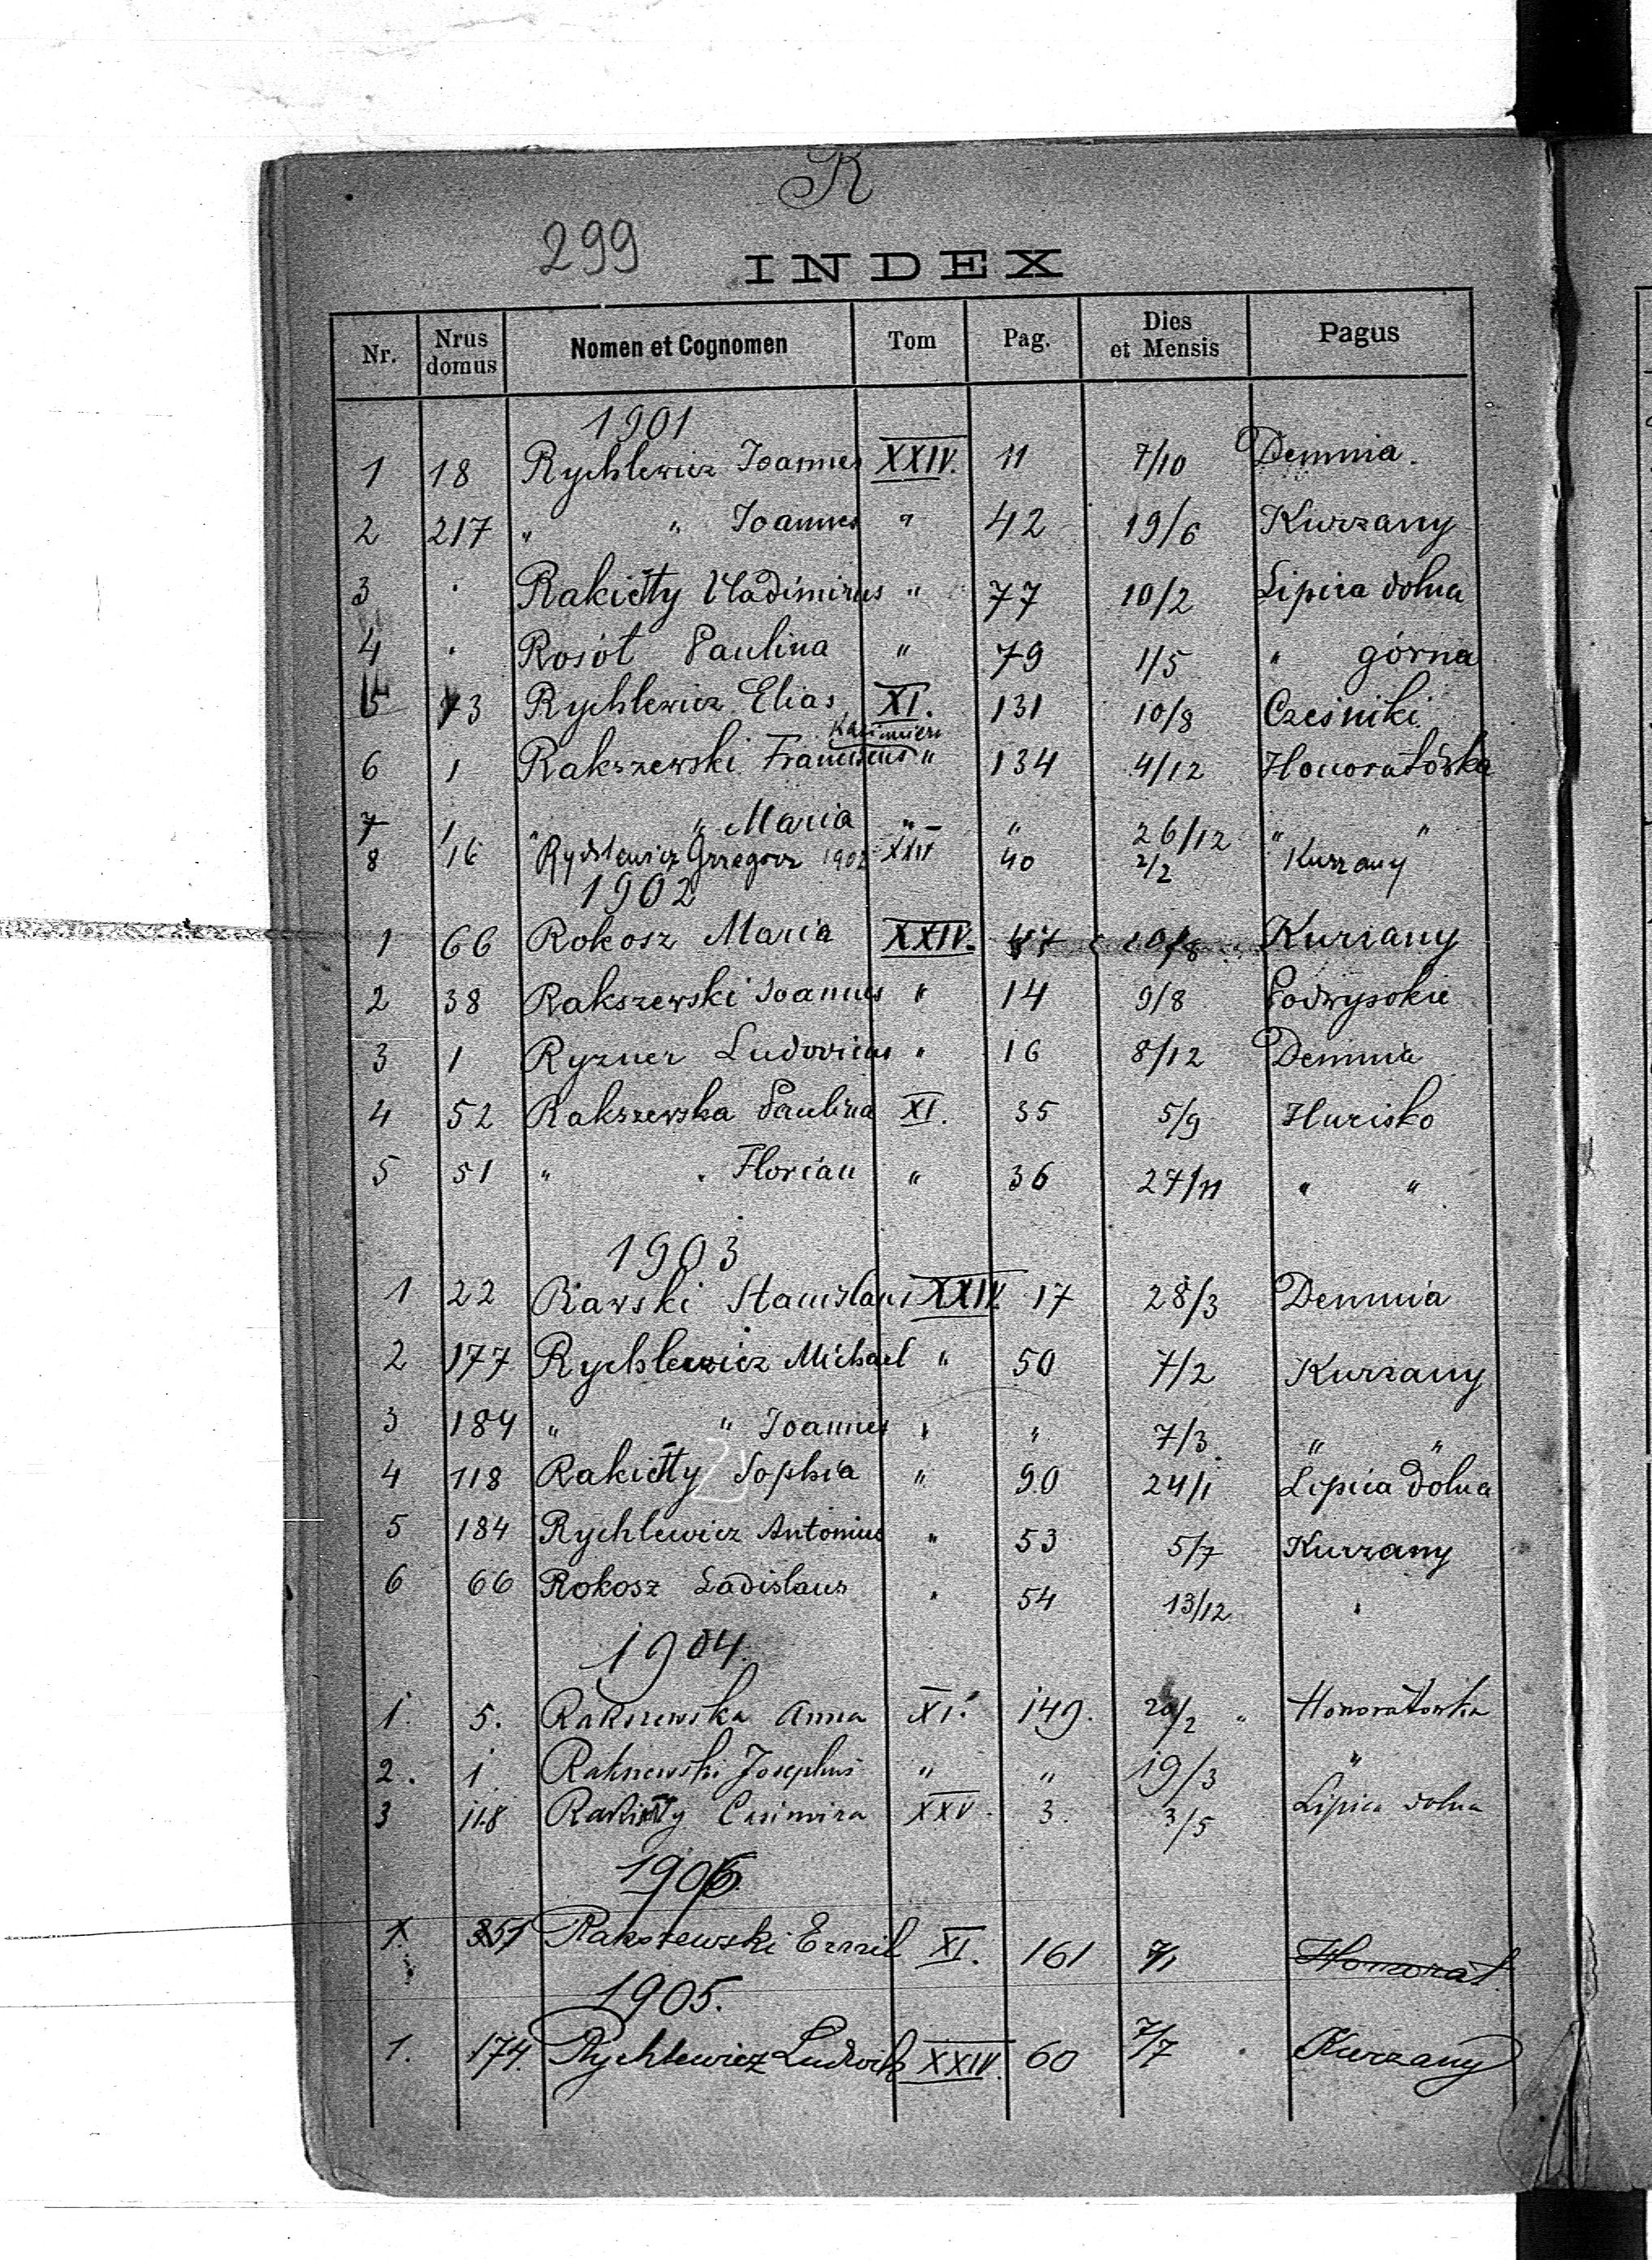 R
299
INDEX
Nr. Nrus domus Nomen et Cognomen Tom Pag. Dies et Mensis Pagus
1901
1 18 Rychlewicz Joannes XXIV. 11 7/10 Demnia.
2 217 " " Joannes " 42 19/6 Kurzany
3 . Rakietty Wladimirus " 77 10/2 Lipica dolna
4 . Rosół Paulina " 79 1/5 " górna
5 73 Rychlewicz Elias XI. 131 10/8 Cześniki
Kazimierz
6 1 Rakszewski Franciscus " 134 4/12 Honoratówka
7 1 " " Maria " " 26/12 " "
8 16 Rychlewicz Grzegorz 1902 XXIV 40 2/2 Kurzany
1902
1 66 Rokosz Maria XXIV. 47 10/8 Kurzany
2 38 Rakszewski Joannes " 14 9/8 Podwysokie
3 1 Ryzner Ludovicus " 16 8/12 Demnia
4 52 Rakszewska Paulina XI. 35 5/9 Hurisko
5 51 " " Florian " 36 27/11 " "
1903
1 22 Rawski Stanislaus XXIV 17 28/3 Demnia
2 177 Rychlewicz Michael " 50 7/2 Kurzany
3 184 " " Joannes " " 7/3 " "
4 118 Rakietty Sophia " 90 24/1 Lipica dolna
5 184 Rychlewicz Antonius " 53 5/7 Kurzany
6 66 Rokosz Ladislaus " 54 13/12 "
1904.
1. 5. Rakszewska Anna XI. 149. 20/2 " Honoratówka
2. 1. Rakszewski Josephus " " 19/3 "
3 118 Rakietty Casimira XXV. 3. 3/5 Lipica dolna
1906
1. 351 Rakszewski XI. 161 7/1 Honorat
1905.
1. 174. Rychlewicz Ludwik XXIV. 60 7/7 . Kurzany